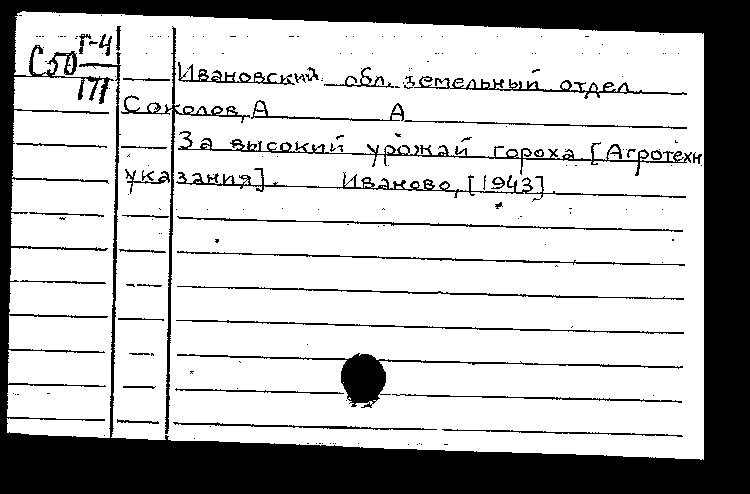 С50 Г-4
171
Ивановский обл. земельный отдел.
Соколов, А А
За высокий урожай гороха. [Агротехн
указания]. Иваново, [1943].